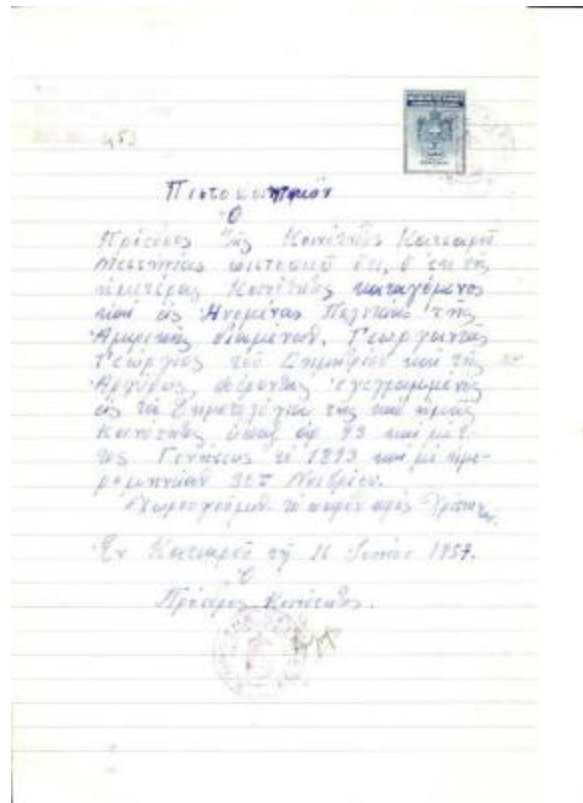 453
Πιστοποιητικόν
Ὁ
Πρόεδρος τῆς Κοινότητος Κατσαροῦ
Μεσσηνίας πιστοποιῶ ὅτι, ὁ ἐκ τῆς
ἡμετέρας Κοινότητος καταγόμενος
καί εἰς Ἡνωμένας Πολιτείας τῆς
Ἀμερικῆς διαμένων, Γεωργαντᾶς
Γεώργιος τοῦ Δημητρίου καί τῆς
φέρεται ἐγγεγραμμένος
εἰς τά Δημοτολόγια τῆς καθ' ἡμᾶς
Κοινότητος ὑπ' ἀρ 93 καί μέ ἔ-
τος Γεννήσεως τό 1893 καί μέ ἡμε-
ρομηνίαν 30 Νοεβρίου.
Χωρηγοῦμεν τό παρόν πρός χρῆσιν.
Ἐν Κατσαροῦ τῇ 16 1957.
Ὁ
Πρόεδρος Κοινότητος.